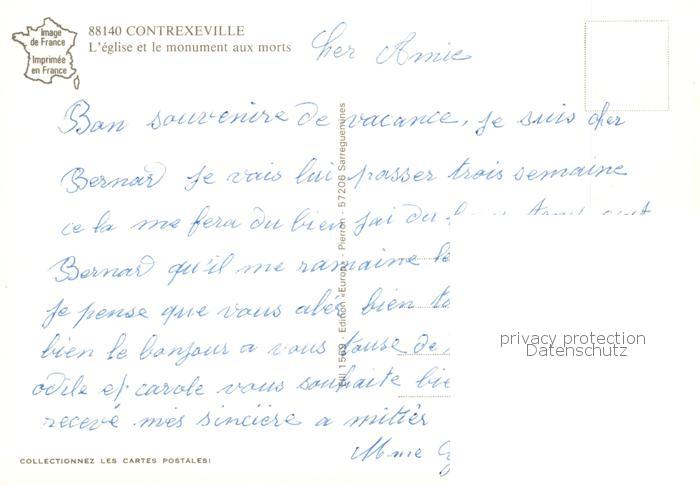 Image
de France
Imprimée
en France
88140 CONTREXEVILLE
L'église et le monument aux morts
Cher Amie
Bon souvenire de vacance, je suis cher
Bernard je vais lui passer trois semaine
ce la me fera du bien jai du
Bernard qu'il me ramaine
je pense que vous aler bien
bien le bonjour a vous touse de
odile et carole vous souhaite
recevé mes sincère a mitier
Mme
Ell 1569 - Edition «Europ» - Pierron - 57206 Sarreguemines
privacy protection
Datenschutz
COLLECTIONNEZ LES CARTES POSTALES!